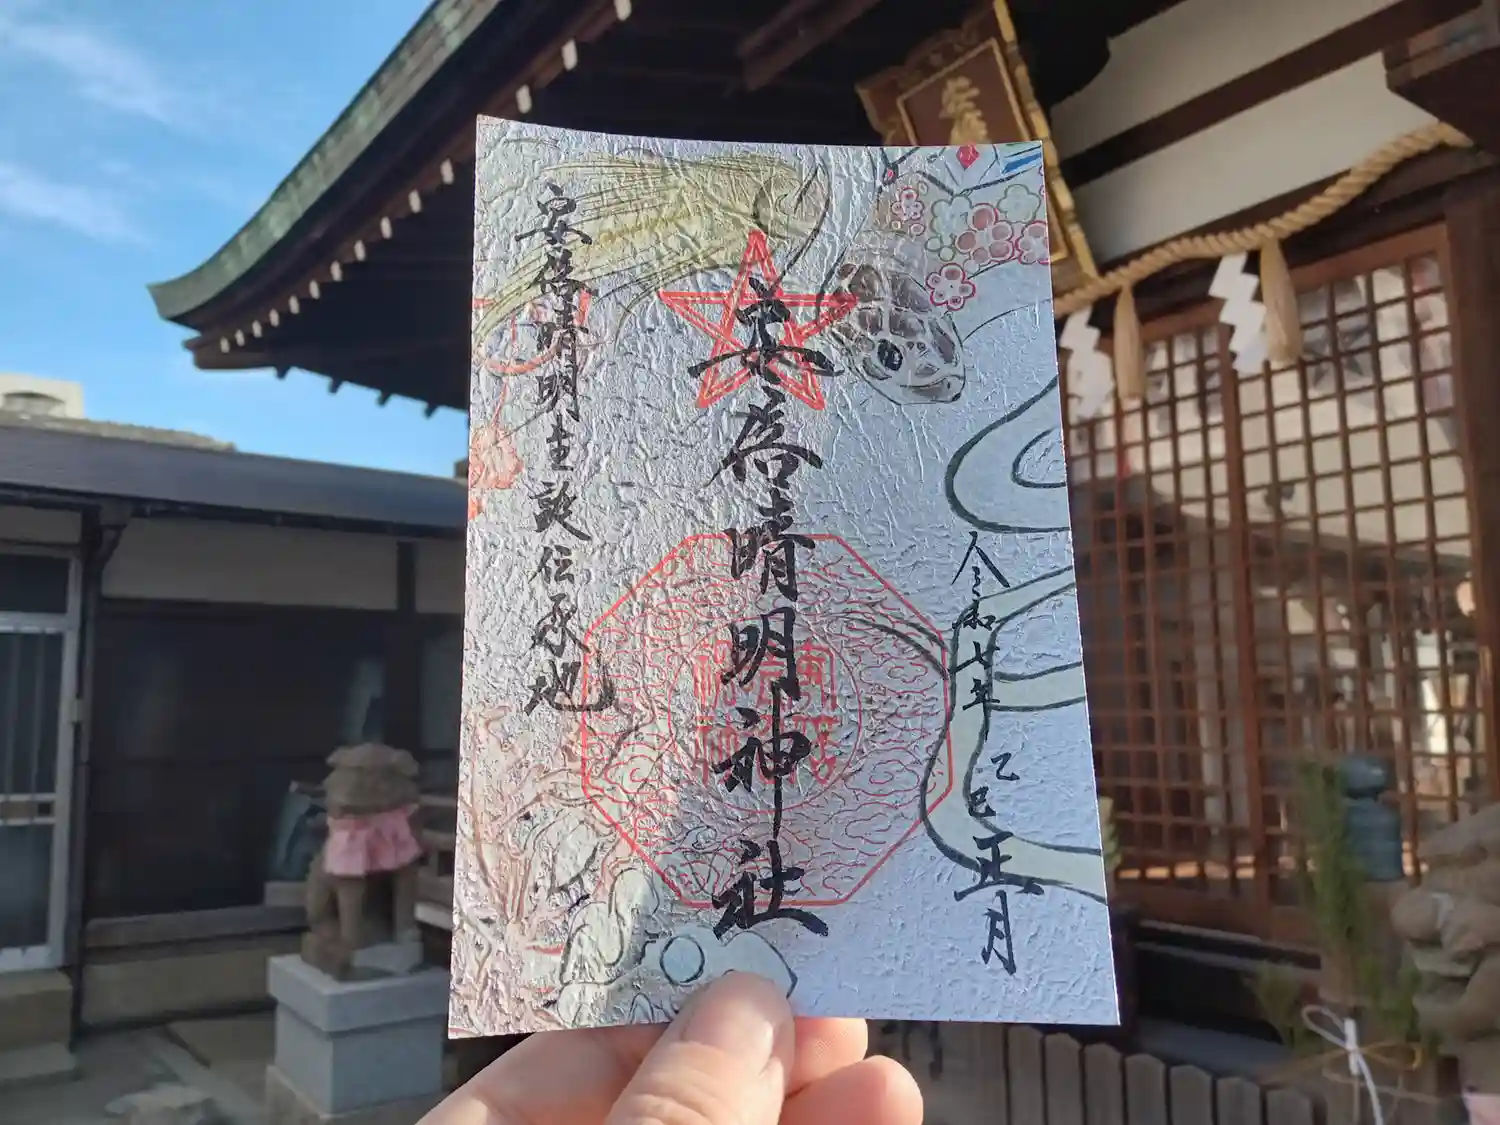 令和七年 乙巳正月
安倍晴明神社
安倍晴明生誕伝承地